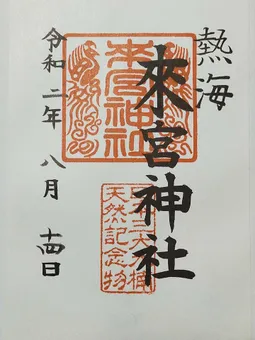 熱海
來宮神社
來宮神社
天然記念物
令和二年 八月 十四日